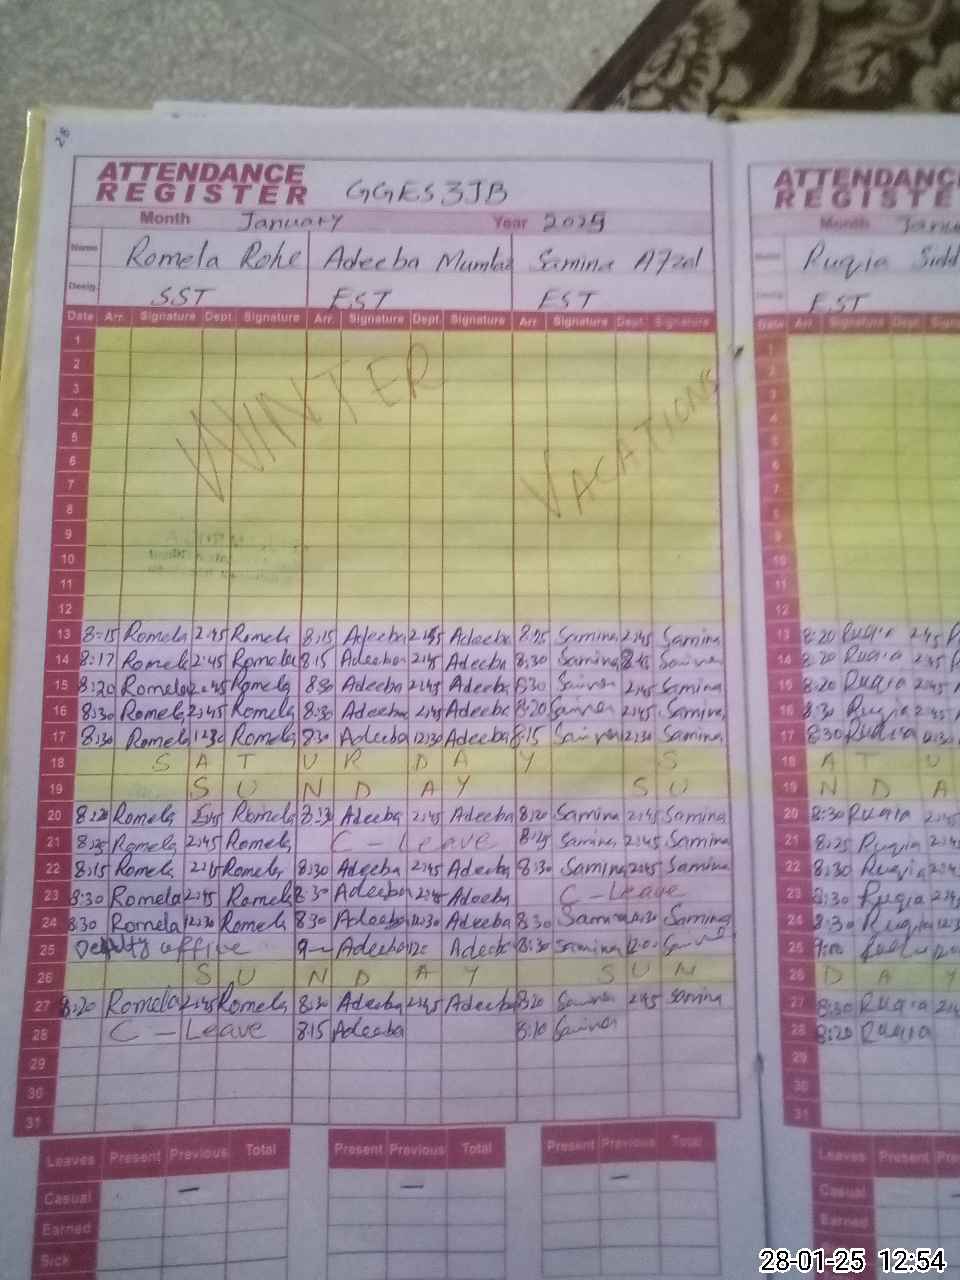 28
ATTENDANCE
REGISTER GGES 3JB
Month January Year 2025
Name Romela Adeeba Samina Afzal
Desig. SST EST EST
Date Arr. Signature Dept. Signature Arr. Signature Dept. Signature Arr. Signature Dept. Signature
1
2
3
4
5
6
7
8
9
10
11
12
WINTER VACATIONS
13 8:15 Romela 2:45 Romela 8:15 Adeeba 2:45 Adeeba 8:25 Samina 2:45 Samina
14 8:17 Romela 2:45 Romela 8:15 Adeeba 2:45 Adeeba 8:30 Samina 2:45 Samina
15 8:20 Romela 2:45 Romela 8:30 Adeeba 2:45 Adeeba 8:30 Samina 2:45 Samina
16 8:30 Romela 2:45 Romela 8:30 Adeeba 2:45 Adeeba 8:20 Samina 2:45 Samina
17 8:30 Romela 12:30 Romela 8:30 Adeeba 12:30 Adeeba 8:15 Samina 12:30 Samina
18 S A T U R D A Y S
19 S U N D A Y S U
20 8:20 Romela 2:45 Romela Adeeba 2:45 Adeeba 8:20 Samina 2:45 Samina
21 8:25 Romela 2:45 Romela C - Leave 8:25 Samina 2:45 Samina
22 8:15 Romela 2:45 Romela 8:30 Adeeba 2:45 Adeeba 8:30 Samina 2:45 Samina
23 8:30 Romela 2:45 Romela 8:30 Adeeba 2:45 Adeeba C - Leave
24 8:30 Romela 12:30 Romela 8:30 Adeeba 12:30 Adeeba 8:30 Samina 12:30 Samina
25 Deputy office 9- Adeeba Adeeba 8:30 Samina Samina
26 S U N D A Y S U N
27 8:20 Romela 2:45 Romela 8:20 Adeeba 2:45 Adeeba 8:20 Samina 2:45 Samina
28 C - Leave 8:15 Adeeba 8:10 Samina
29
30
31
Leaves Present Previous Total Present Previous Total Present Previous Total
Casual - - -
Earned
Sick
ATTENDANC
REGISTE
Month Janu
Ruqia
EST
Date Arr. Signature Dept.
1
2
3
4
5
6
7
8
9
10
11
12
13 8:20 Ruqia 2:45
14 8:20 Ruqia 2:45
15 8:20 Ruqia 2:45
16 8:30 Ruqia 2:45
17 8:30 Ruqia 12:30
18 A T U
19 N D A
20 8:30 Ruqia 2:45
21 8:25 Ruqia 2:45
22 8:30 Ruqia 2:45
23 8:30 Ruqia 2:45
24 8:30 Ruqia
25 9:00
26 D A Y
27 8:30 Ruqia 2:45
28 8:20 Ruqia
29
30
31
Leaves Present Pre
Casual
Earned
Sick
28-01-25 12:54